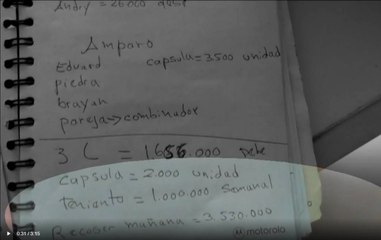 Andry = 26000
Amparo
Eduard capsula = 3.500 unidad
piedra
brayan
pareja => combinador
3 C = 1656.000 debe
capsula = 2.000 unidad
Teniento = 1.000.000 semanal
Recoger mañana = 3.530.000
motorola
0:31 / 3:15